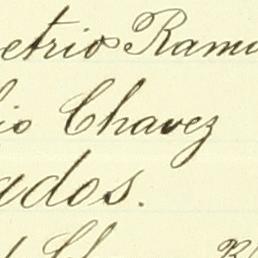 etrio Ramo
io Chavez
ados.